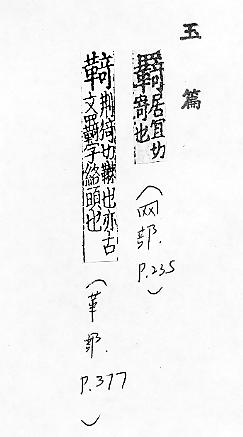 玉篇
羇居宜切
寄也
（网部.
P.235）
䩭荆猗切也亦古
文羈字絡頭也
（革部.
P.377）